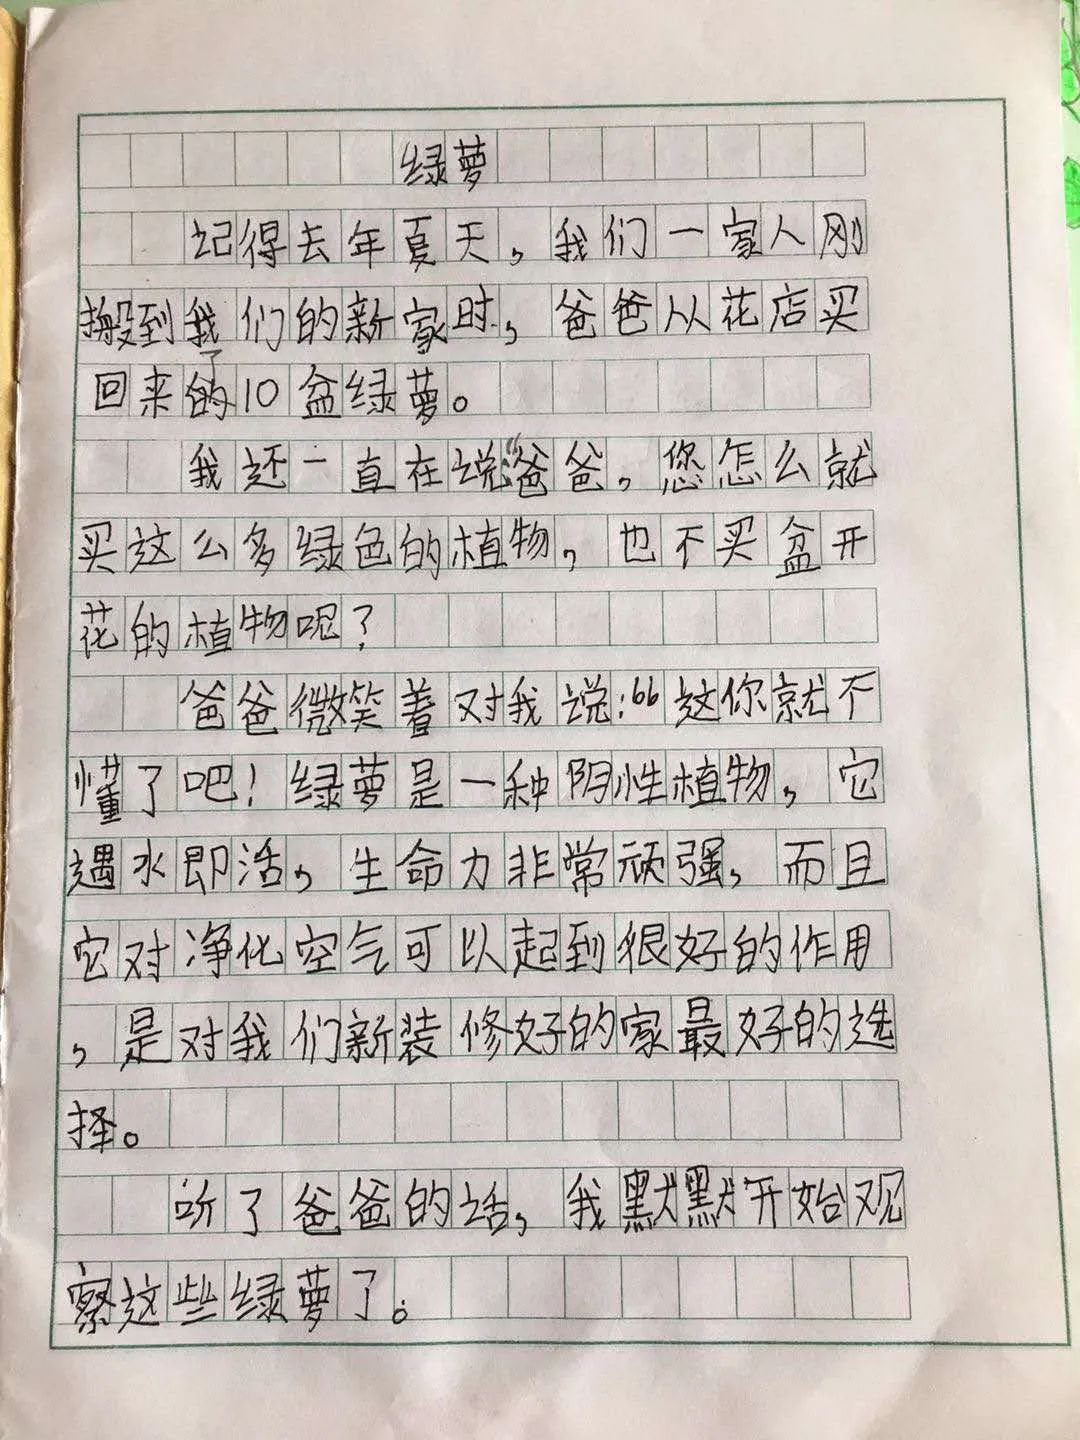 绿萝
记得去年夏天，我们一家人刚
搬到我们的新家时，爸爸从花店买
回来了10盆绿萝。
我还一直在说：“爸爸，您怎么就
买这么多绿色的植物，也不买盆开
花的植物呢？
爸爸微笑着对我说：“这你就不
懂了吧！绿萝是一种阴性植物，它
遇水即活，生命力非常顽强，而且
它对净化空气可以起到很好的作用
，是对我们新装修好的家最好的选
择。
听了爸爸的话，我默默开始观
察这些绿萝了。